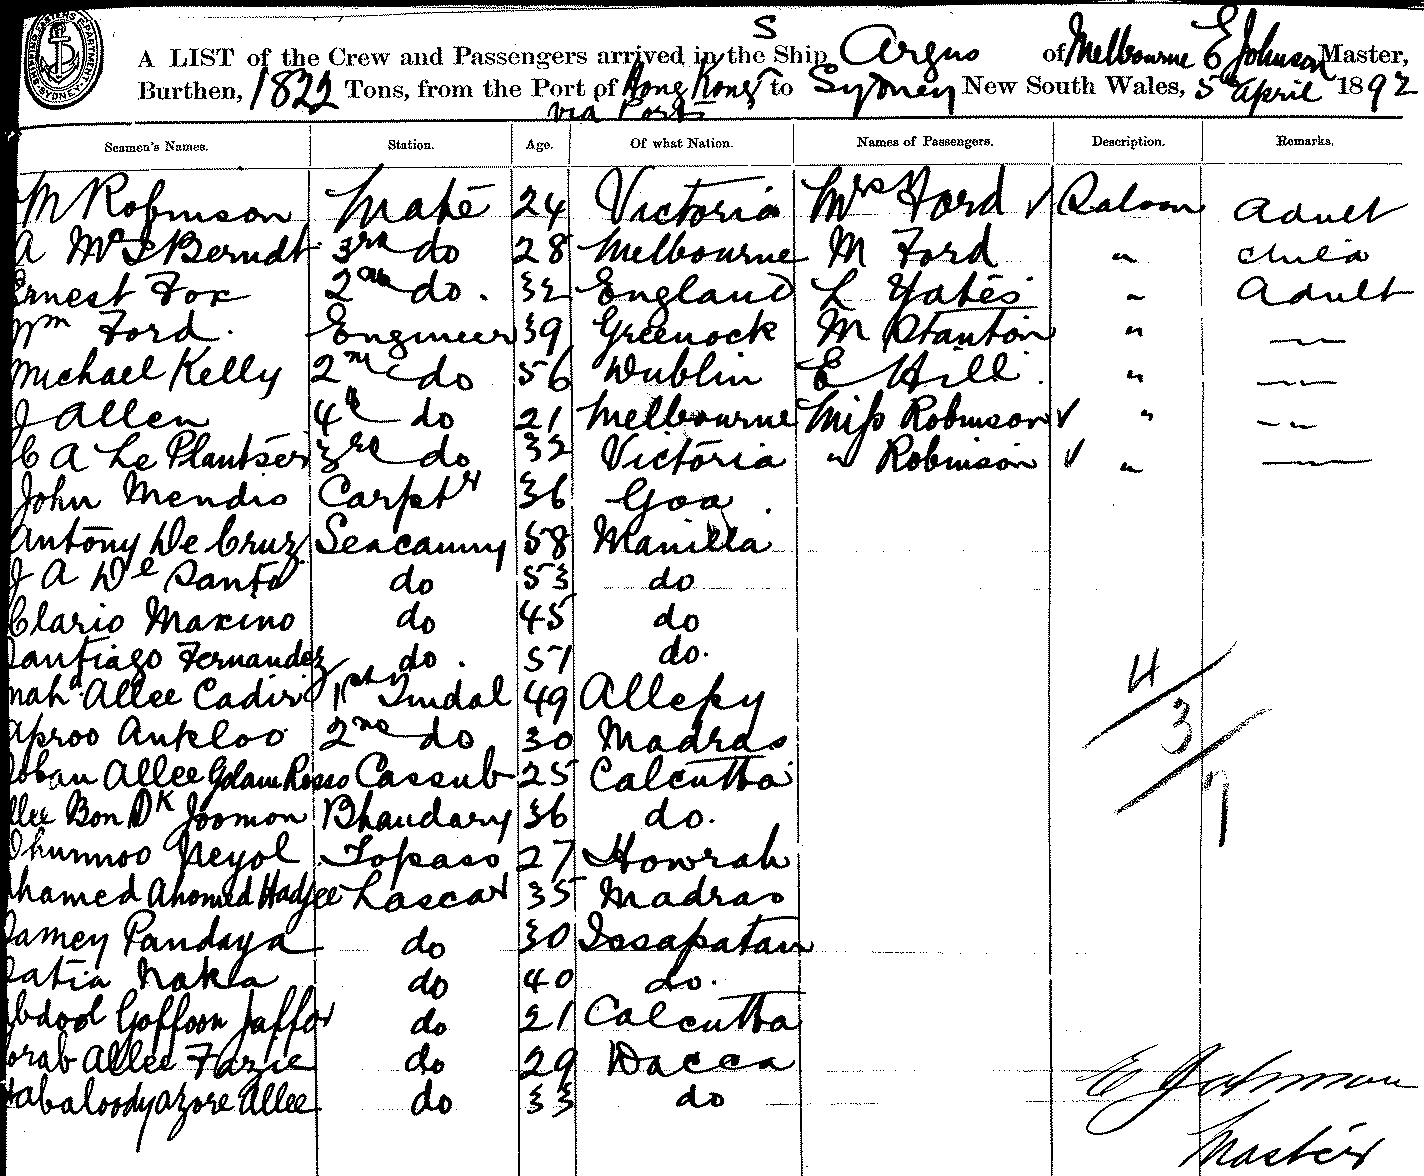 S
A LIST of the Crew and Passengers arrived in the Ship Argus of Melbourne E Johnson Master,
Burthen, 1822 Tons, from the Port of Hong Kong to Sydney New South Wales, 5th April 1892
via Ports
Seamen's Names. Station. Age. Of what Nation. Names of Passengers. Description. Remarks.
M Robinson Mate 24 Victoria Mrs Ford Saloon Adult
A Berndt 3rd do 28 Melbourne M Ford " Child
Ernest Fox 2nd do. 32 England L Yates " Adult
Wm Ford. Engineer 39 Greenock M Stanton " —
Michael Kelly 2nd do 56 Dublin E Hill. " —
J Allen 4th do 21 Melbourne Miss Robinson " —
C A Le Plantsier 3rd do 32 Victoria " Robinson " —
John Mendis Carptr 36 Goa.
Antony De Cruz Seacunny 58 Manilla
J A De Santo do 53 do
Clario Maxino do 45 do
Santiago Fernandez do. 57 do.
Mahd Allee Cadir 1st Tindal 49 Allepy
Aproo Ankloo 2nd do 30 Madras
Allee Golam Cassub 25 Calcutta
Allee Bon Dk Joomon Bhandary 36 do.
Jeyol Topass 27 Howrah
Mahamed Ahomed Hadjee Lascar 35 Madras
Ramey Pandaya do 30 Issapatam
Satia Nokia do 40 do.
Abdool Goffoor Jaffor do 21 Calcutta
Torab Allee Fazie do 29 Dacca
Allee do 33 do
4
3
7
E Johnson
Master